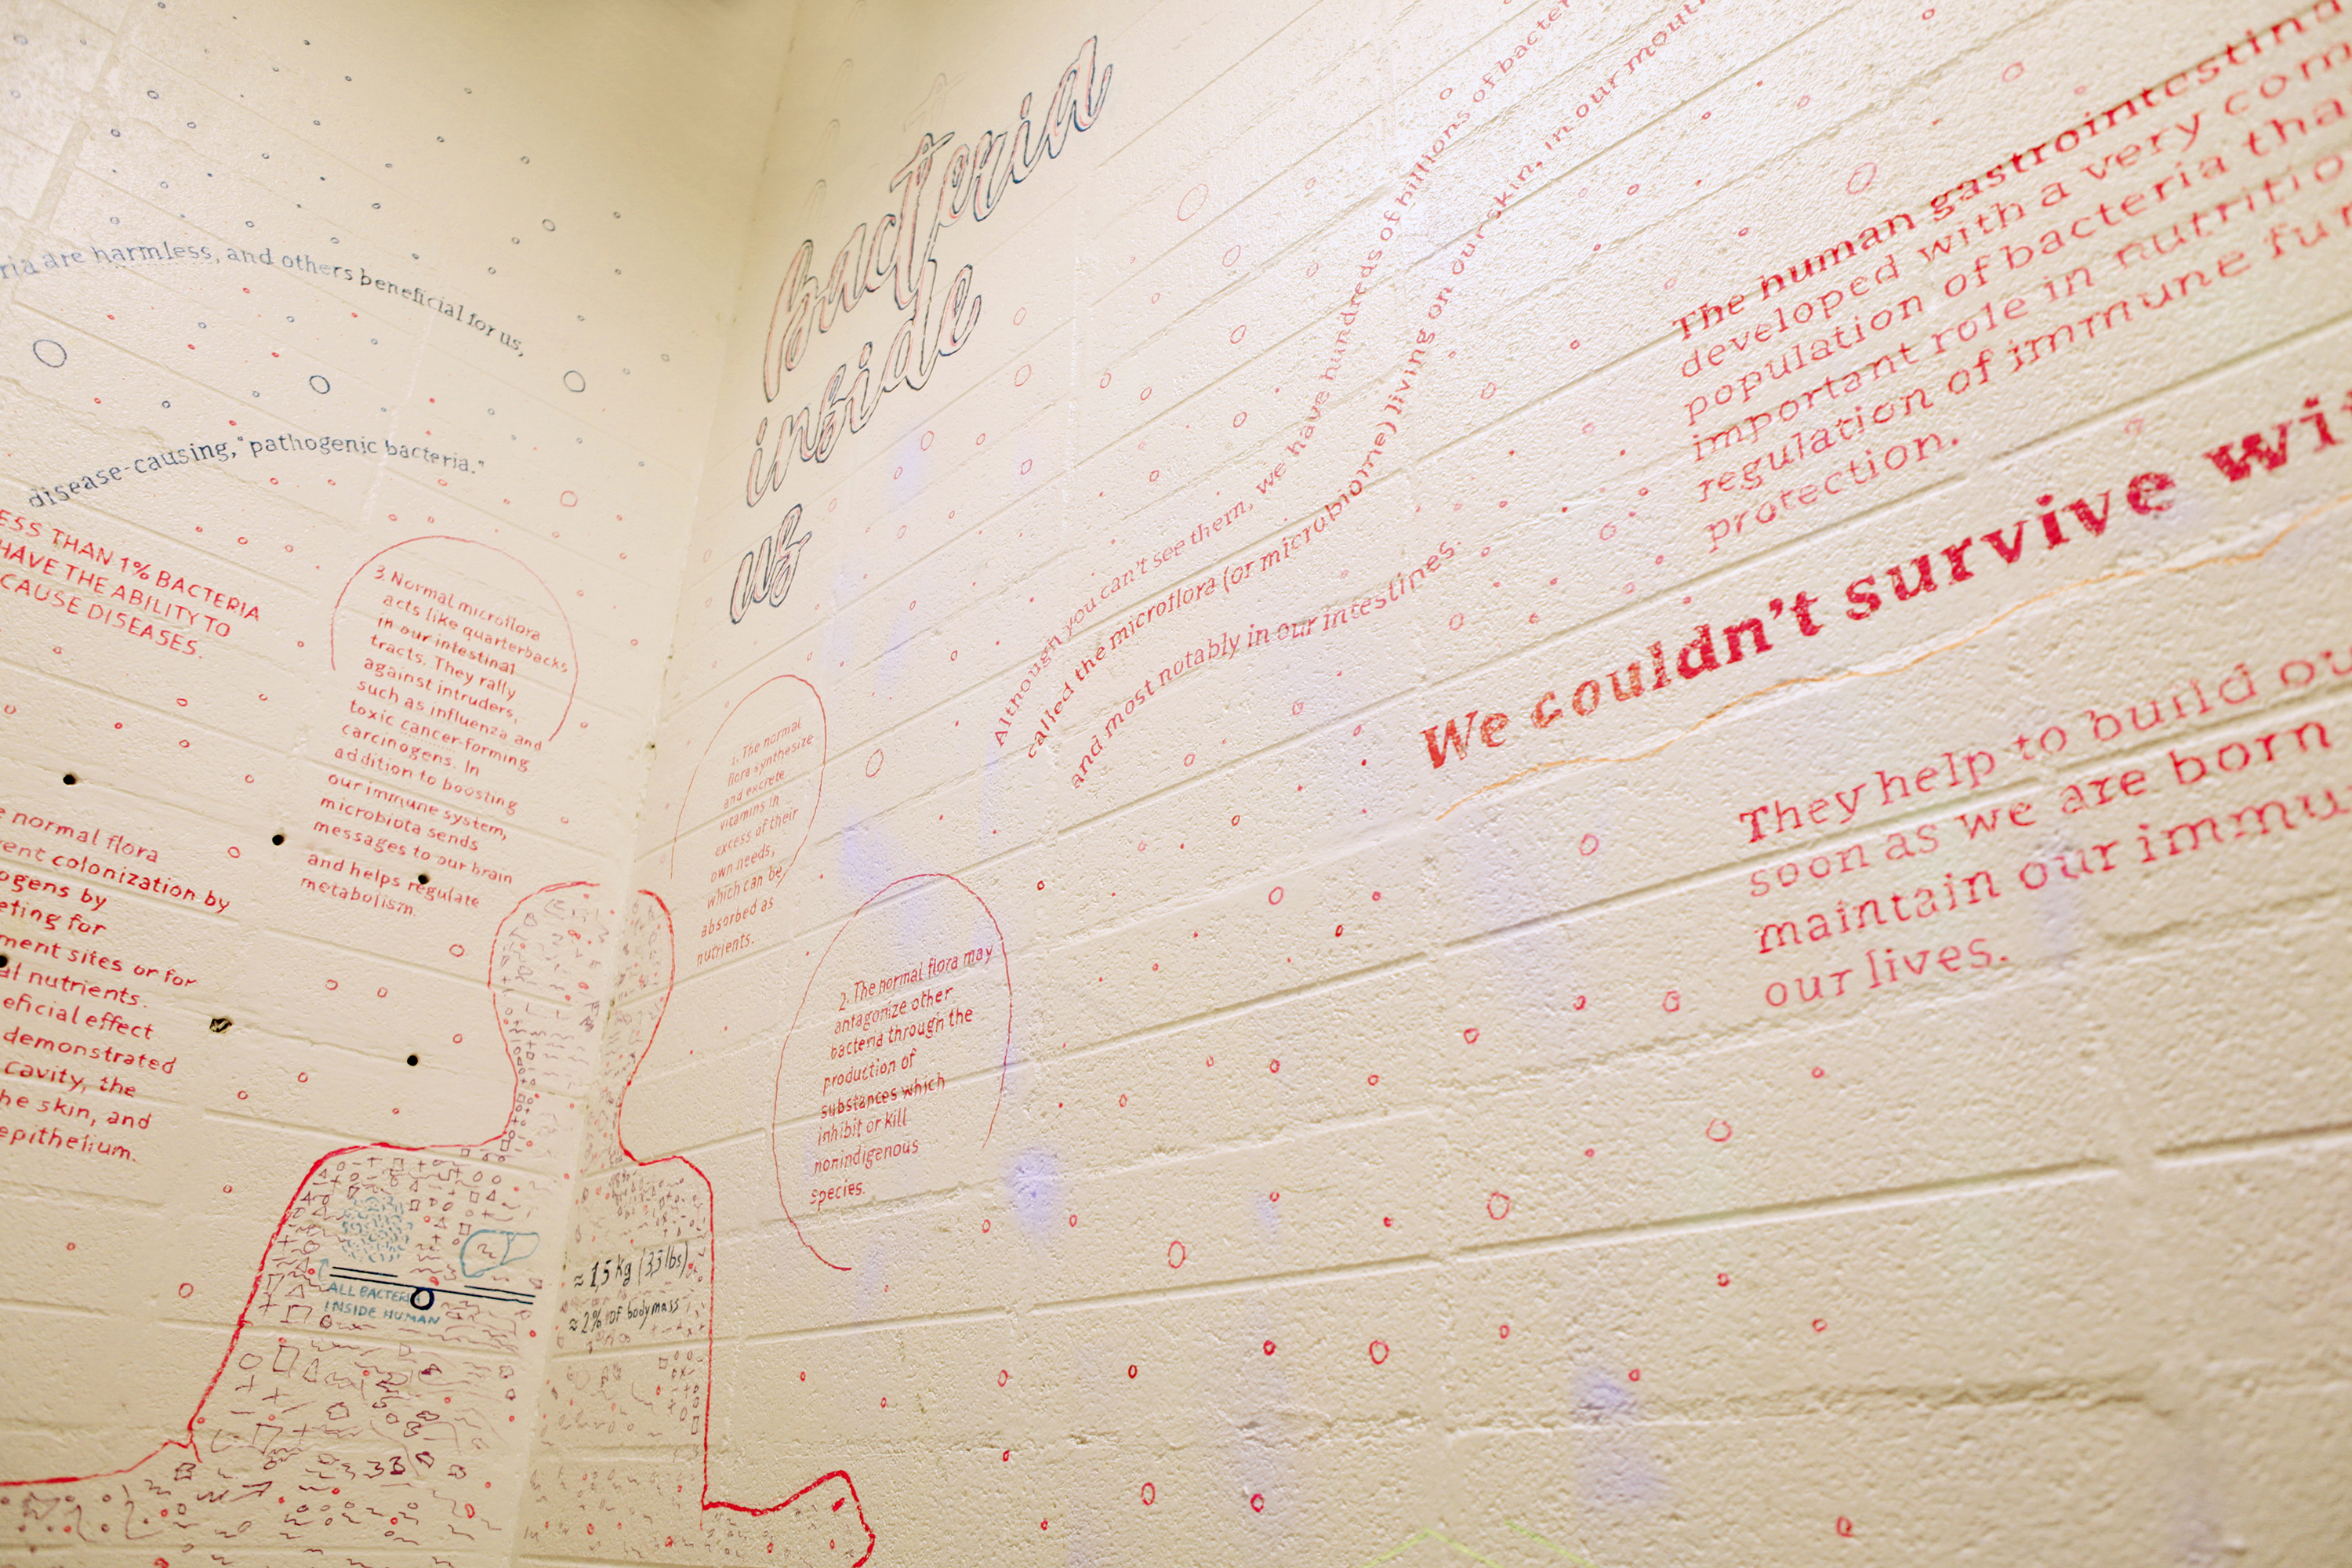 bacteria
inside
us
are harmless, and others beneficial for us,
disease-causing, "pathogenic bacteria."
THAN 1% BACTERIA
HAVE THE ABILITY TO
CAUSE DISEASES.
3. Normal microflora
acts like quarterbacks
in our intestinal
tracts. They rally
against intruders,
such as influenza and
toxic cancer-forming
carcinogens. In
addition to boosting
our immune system,
microbiota sends
messages to our brain
and helps regulate
metabolism.
normal flora
colonization by
by
for
sites or for
nutrients.
effect
demonstrated
cavity, the
skin, and
epithelium.
1. The normal
flora synthesize
and excrete
vitamins in
excess of their
own needs,
which can be
absorbed as
nutrients.
2. The normal flora may
antagonize other
bacteria through the
production of
substances which
inhibit or kill
nonindigenous
species.
ALL BACTERIA
INSIDE HUMAN
≈ 1,5 kg (3,3 lbs)
≈ 2% of bodymass
Although you can't see them, we have hundreds of billions of
called the microflora (or microbiome) living on our skin, in our
and most notably in our intestines.
The human
developed with a very
population of bacteria
important role in
regulation of immune
protection.
We couldn't survive
They help to build
soon as we are born
maintain our
our lives.